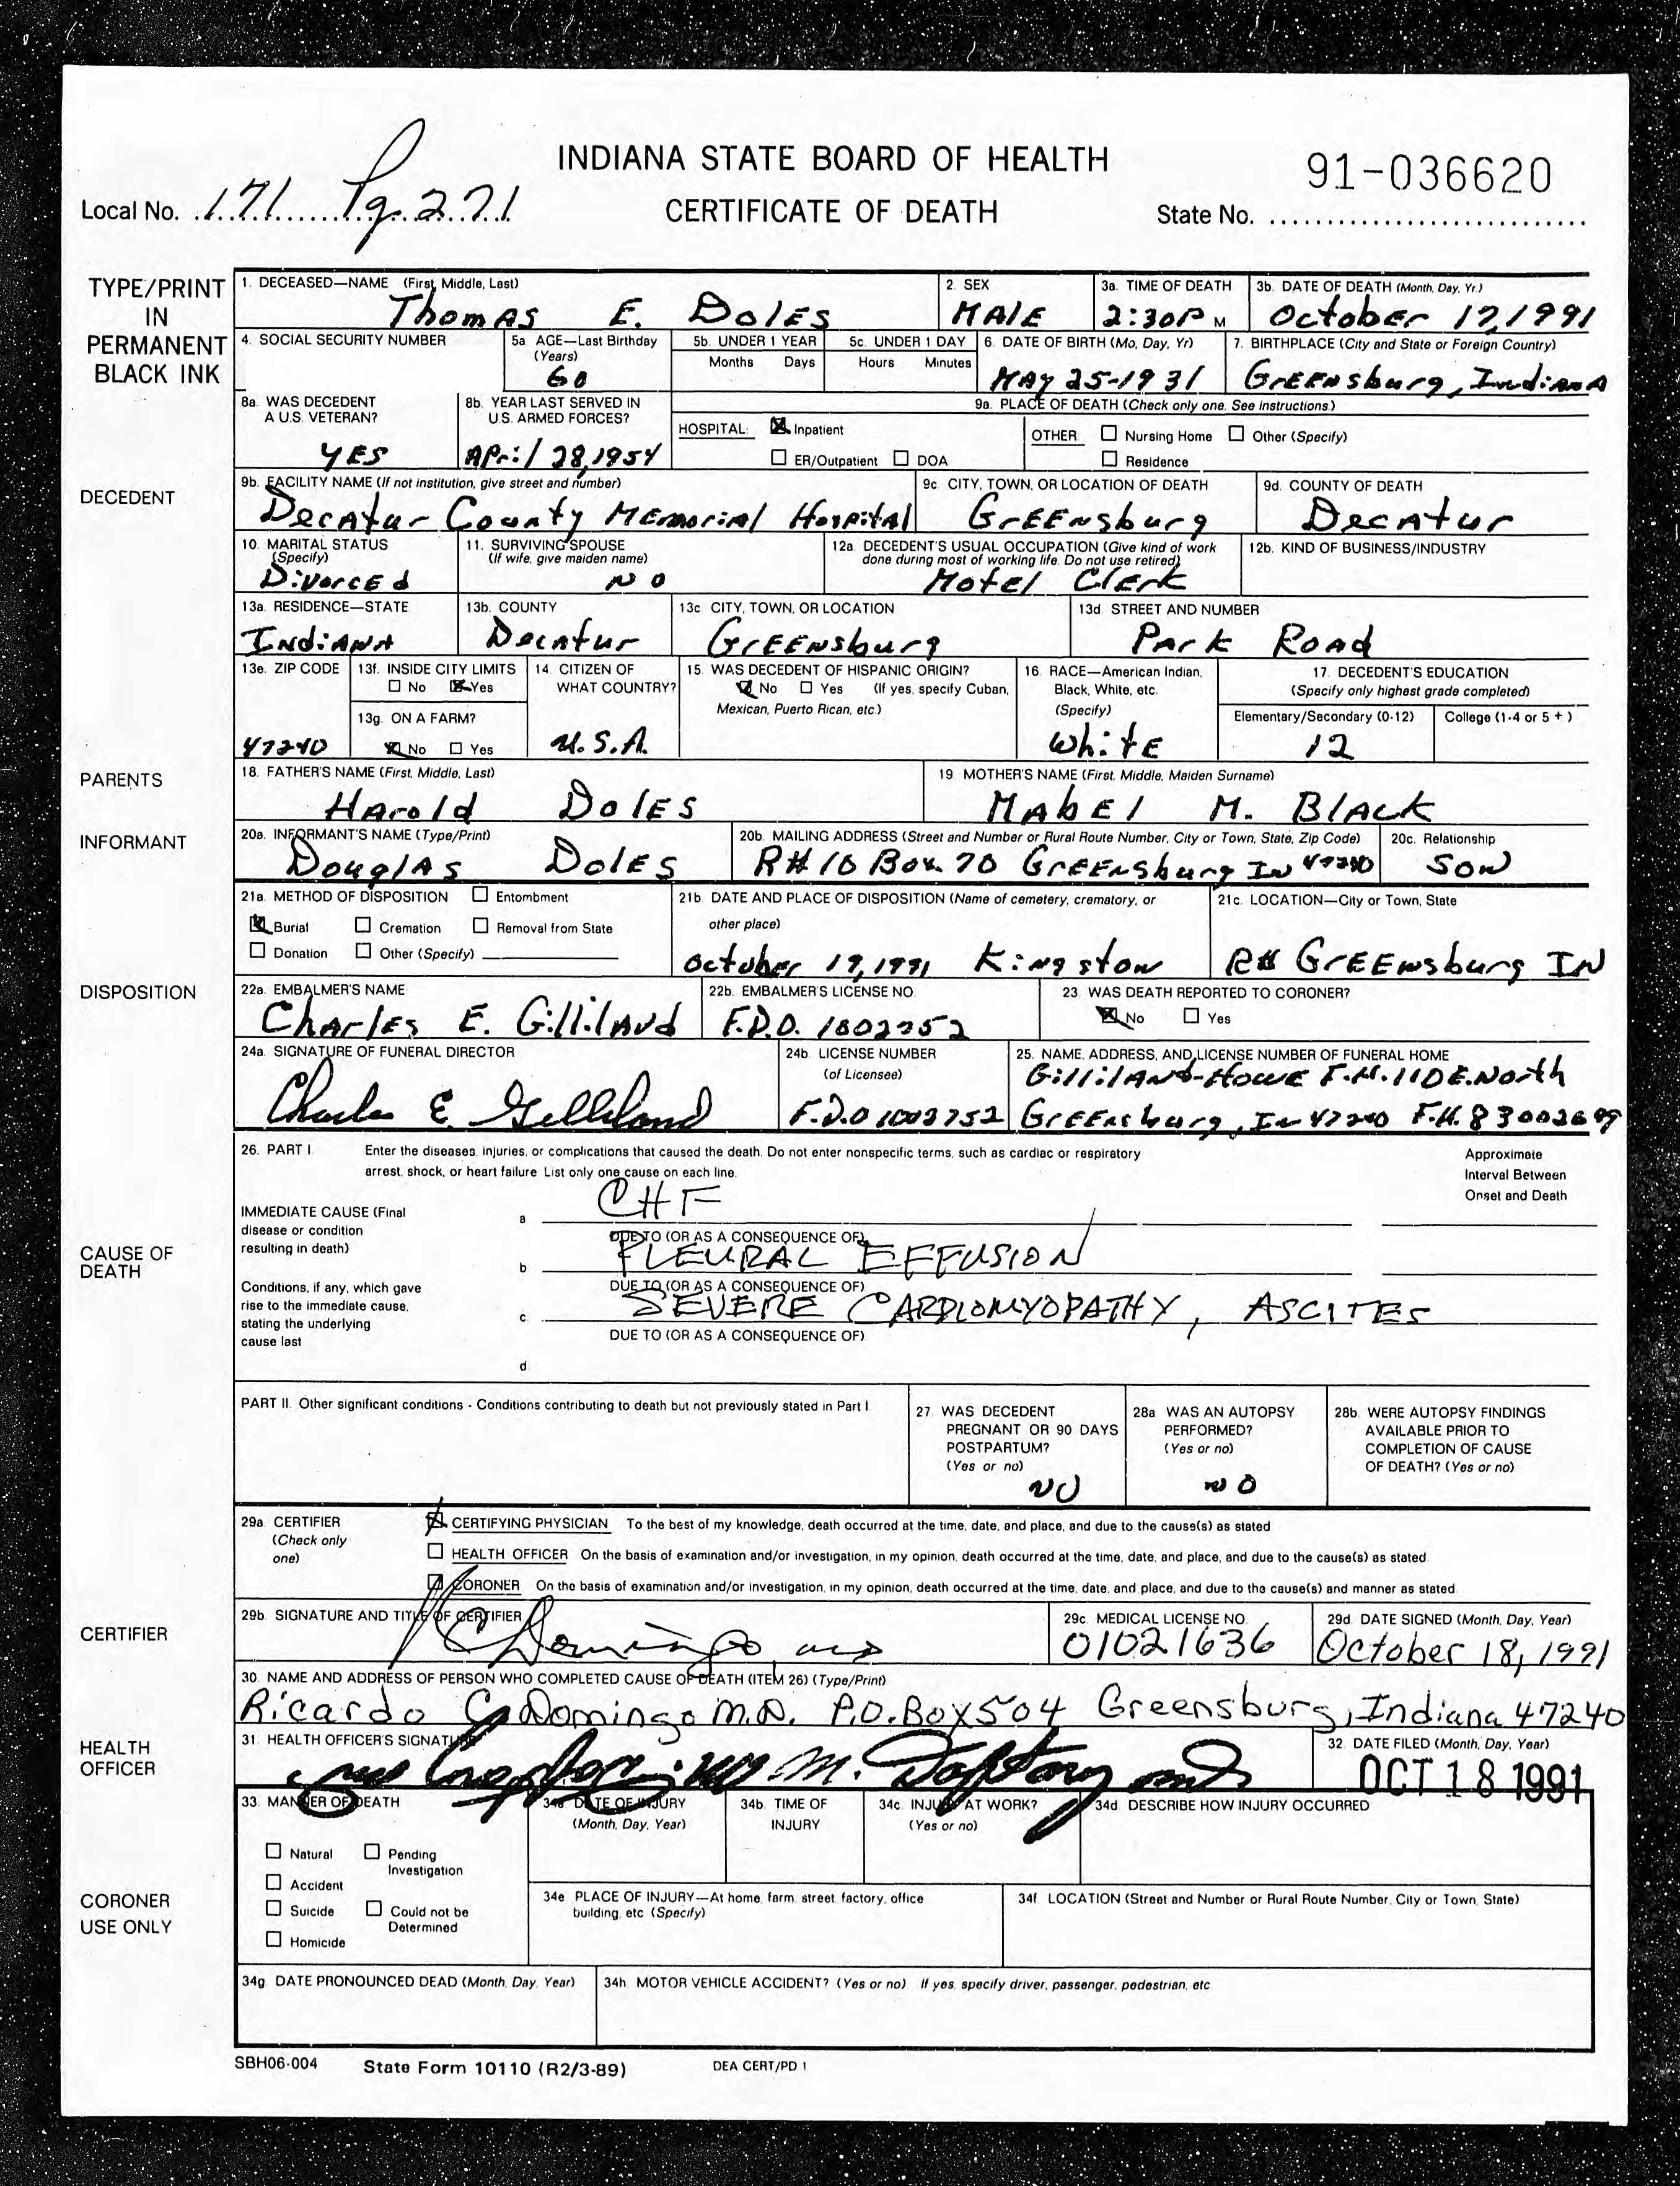 INDIANA STATE BOARD OF HEALTH
CERTIFICATE OF DEATH
91-036620
Local No. 171 Pg. 271
State No.
TYPE/PRINT IN PERMANENT BLACK INK
1. DECEASED—NAME (First, Middle, Last)
Thomas E. Doles
2. SEX
MALE
3a. TIME OF DEATH
2:30P M
3b. DATE OF DEATH (Month, Day, Yr.)
October 17, 1991
4. SOCIAL SECURITY NUMBER
5a. AGE—Last Birthday (Years)
60
5b. UNDER 1 YEAR
Months Days
5c. UNDER 1 DAY
Hours Minutes
6. DATE OF BIRTH (Mo, Day, Yr)
MAY 25-1931
7. BIRTHPLACE (City and State or Foreign Country)
Greensburg, Indiana
DECEDENT
8a. WAS DECEDENT A U.S. VETERAN?
YES
8b. YEAR LAST SERVED IN U.S. ARMED FORCES?
April 28, 1954
9a. PLACE OF DEATH (Check only one. See instructions.)
HOSPITAL: ☒ Inpatient
☐ ER/Outpatient ☐ DOA
OTHER: ☐ Nursing Home ☐ Other (Specify)
☐ Residence
9b. FACILITY NAME (If not institution, give street and number)
Decatur County Memorial Hospital
9c. CITY, TOWN, OR LOCATION OF DEATH
Greensburg
9d. COUNTY OF DEATH
Decatur
10. MARITAL STATUS (Specify)
Divorced
11. SURVIVING SPOUSE (If wife, give maiden name)
NO
12a. DECEDENT'S USUAL OCCUPATION (Give kind of work done during most of working life. Do not use retired)
Motel Clerk
12b. KIND OF BUSINESS/INDUSTRY
13a. RESIDENCE—STATE
Indiana
13b. COUNTY
Decatur
13c. CITY, TOWN, OR LOCATION
Greensburg
13d. STREET AND NUMBER
Park Road
13e. ZIP CODE
47240
13f. INSIDE CITY LIMITS
☐ No ☒ Yes
13g. ON A FARM?
☒ No ☐ Yes
14. CITIZEN OF WHAT COUNTRY?
U.S.A.
15. WAS DECEDENT OF HISPANIC ORIGIN?
☒ No ☐ Yes (If yes, specify Cuban, Mexican, Puerto Rican, etc.)
16. RACE—American Indian, Black, White, etc. (Specify)
White
17. DECEDENT'S EDUCATION
(Specify only highest grade completed)
Elementary/Secondary (0-12) College (1-4 or 5+)
12
PARENTS
18. FATHER'S NAME (First, Middle, Last)
Harold Doles
19. MOTHER'S NAME (First, Middle, Maiden Surname)
Mabel M. Black
INFORMANT
20a. INFORMANT'S NAME (Type/Print)
Douglas Doles
20b. MAILING ADDRESS (Street and Number or Rural Route Number, City or Town, State, Zip Code)
R# 10 Box 70 Greensburg In 47240
20c. Relationship
Son
DISPOSITION
21a. METHOD OF DISPOSITION ☐ Entombment
☒ Burial ☐ Cremation ☐ Removal from State
☐ Donation ☐ Other (Specify)
21b. DATE AND PLACE OF DISPOSITION (Name of cemetery, crematory, or other place)
October 19, 1991 Kingston
21c. LOCATION—City or Town, State
R# Greensburg IN
22a. EMBALMER'S NAME
Charles E. Gilliland
22b. EMBALMER'S LICENSE NO.
F.D.O. 1002752
23. WAS DEATH REPORTED TO CORONER?
☒ No ☐ Yes
24a. SIGNATURE OF FUNERAL DIRECTOR
Charles E Gilliland
24b. LICENSE NUMBER (of Licensee)
F.D.O 1002752
25. NAME, ADDRESS, AND LICENSE NUMBER OF FUNERAL HOME
Gilliland-Howe F.H. 110 E. North
Greensburg, In 47240 F.H. 83002699
CAUSE OF DEATH
26. PART I Enter the diseases, injuries, or complications that caused the death. Do not enter nonspecific terms, such as cardiac or respiratory arrest, shock, or heart failure. List only one cause on each line.
Approximate Interval Between Onset and Death
IMMEDIATE CAUSE (Final disease or condition resulting in death)
a CHF
DUE TO (OR AS A CONSEQUENCE OF)
b PLEURAL EFFUSION
Conditions, if any, which gave rise to the immediate cause, stating the underlying cause last
DUE TO (OR AS A CONSEQUENCE OF)
c SEVERE CARDIOMYOPATHY, ASCITES
DUE TO (OR AS A CONSEQUENCE OF)
d
PART II. Other significant conditions - Conditions contributing to death but not previously stated in Part I
27. WAS DECEDENT PREGNANT OR 90 DAYS POSTPARTUM? (Yes or no)
NO
28a. WAS AN AUTOPSY PERFORMED? (Yes or no)
NO
28b. WERE AUTOPSY FINDINGS AVAILABLE PRIOR TO COMPLETION OF CAUSE OF DEATH? (Yes or no)
CERTIFIER
29a. CERTIFIER (Check only one)
☒ CERTIFYING PHYSICIAN To the best of my knowledge, death occurred at the time, date, and place, and due to the cause(s) as stated
☐ HEALTH OFFICER On the basis of examination and/or investigation, in my opinion, death occurred at the time, date, and place, and due to the cause(s) as stated
CORONER On the basis of examination and/or investigation, in my opinion, death occurred at the time, date, and place, and due to the cause(s) and manner as stated
29b. SIGNATURE AND TITLE OF CERTIFIER
Domingo, MD
29c. MEDICAL LICENSE NO.
01021636
29d. DATE SIGNED (Month, Day, Year)
October 18, 1991
30. NAME AND ADDRESS OF PERSON WHO COMPLETED CAUSE OF DEATH (ITEM 26) (Type/Print)
Ricardo C Domingo M.D. P.O. Box 504 Greensburg, Indiana 47240
HEALTH OFFICER
31. HEALTH OFFICER'S SIGNATURE
32. DATE FILED (Month, Day, Year)
OCT 18 1991
CORONER USE ONLY
33. MANNER OF DEATH
☐ Natural ☐ Pending Investigation
☐ Accident
☐ Suicide ☐ Could not be Determined
☐ Homicide
34a. DATE OF INJURY (Month, Day, Year)
34b. TIME OF INJURY
34c. INJURY AT WORK? (Yes or no)
34d. DESCRIBE HOW INJURY OCCURRED
34e. PLACE OF INJURY—At home, farm, street, factory, office building, etc. (Specify)
34f. LOCATION (Street and Number or Rural Route Number, City or Town, State)
34g. DATE PRONOUNCED DEAD (Month, Day, Year)
34h. MOTOR VEHICLE ACCIDENT? (Yes or no) If yes, specify driver, passenger, pedestrian, etc.
SBH06-004 State Form 10110 (R2/3-89) DEA CERT/PD 1